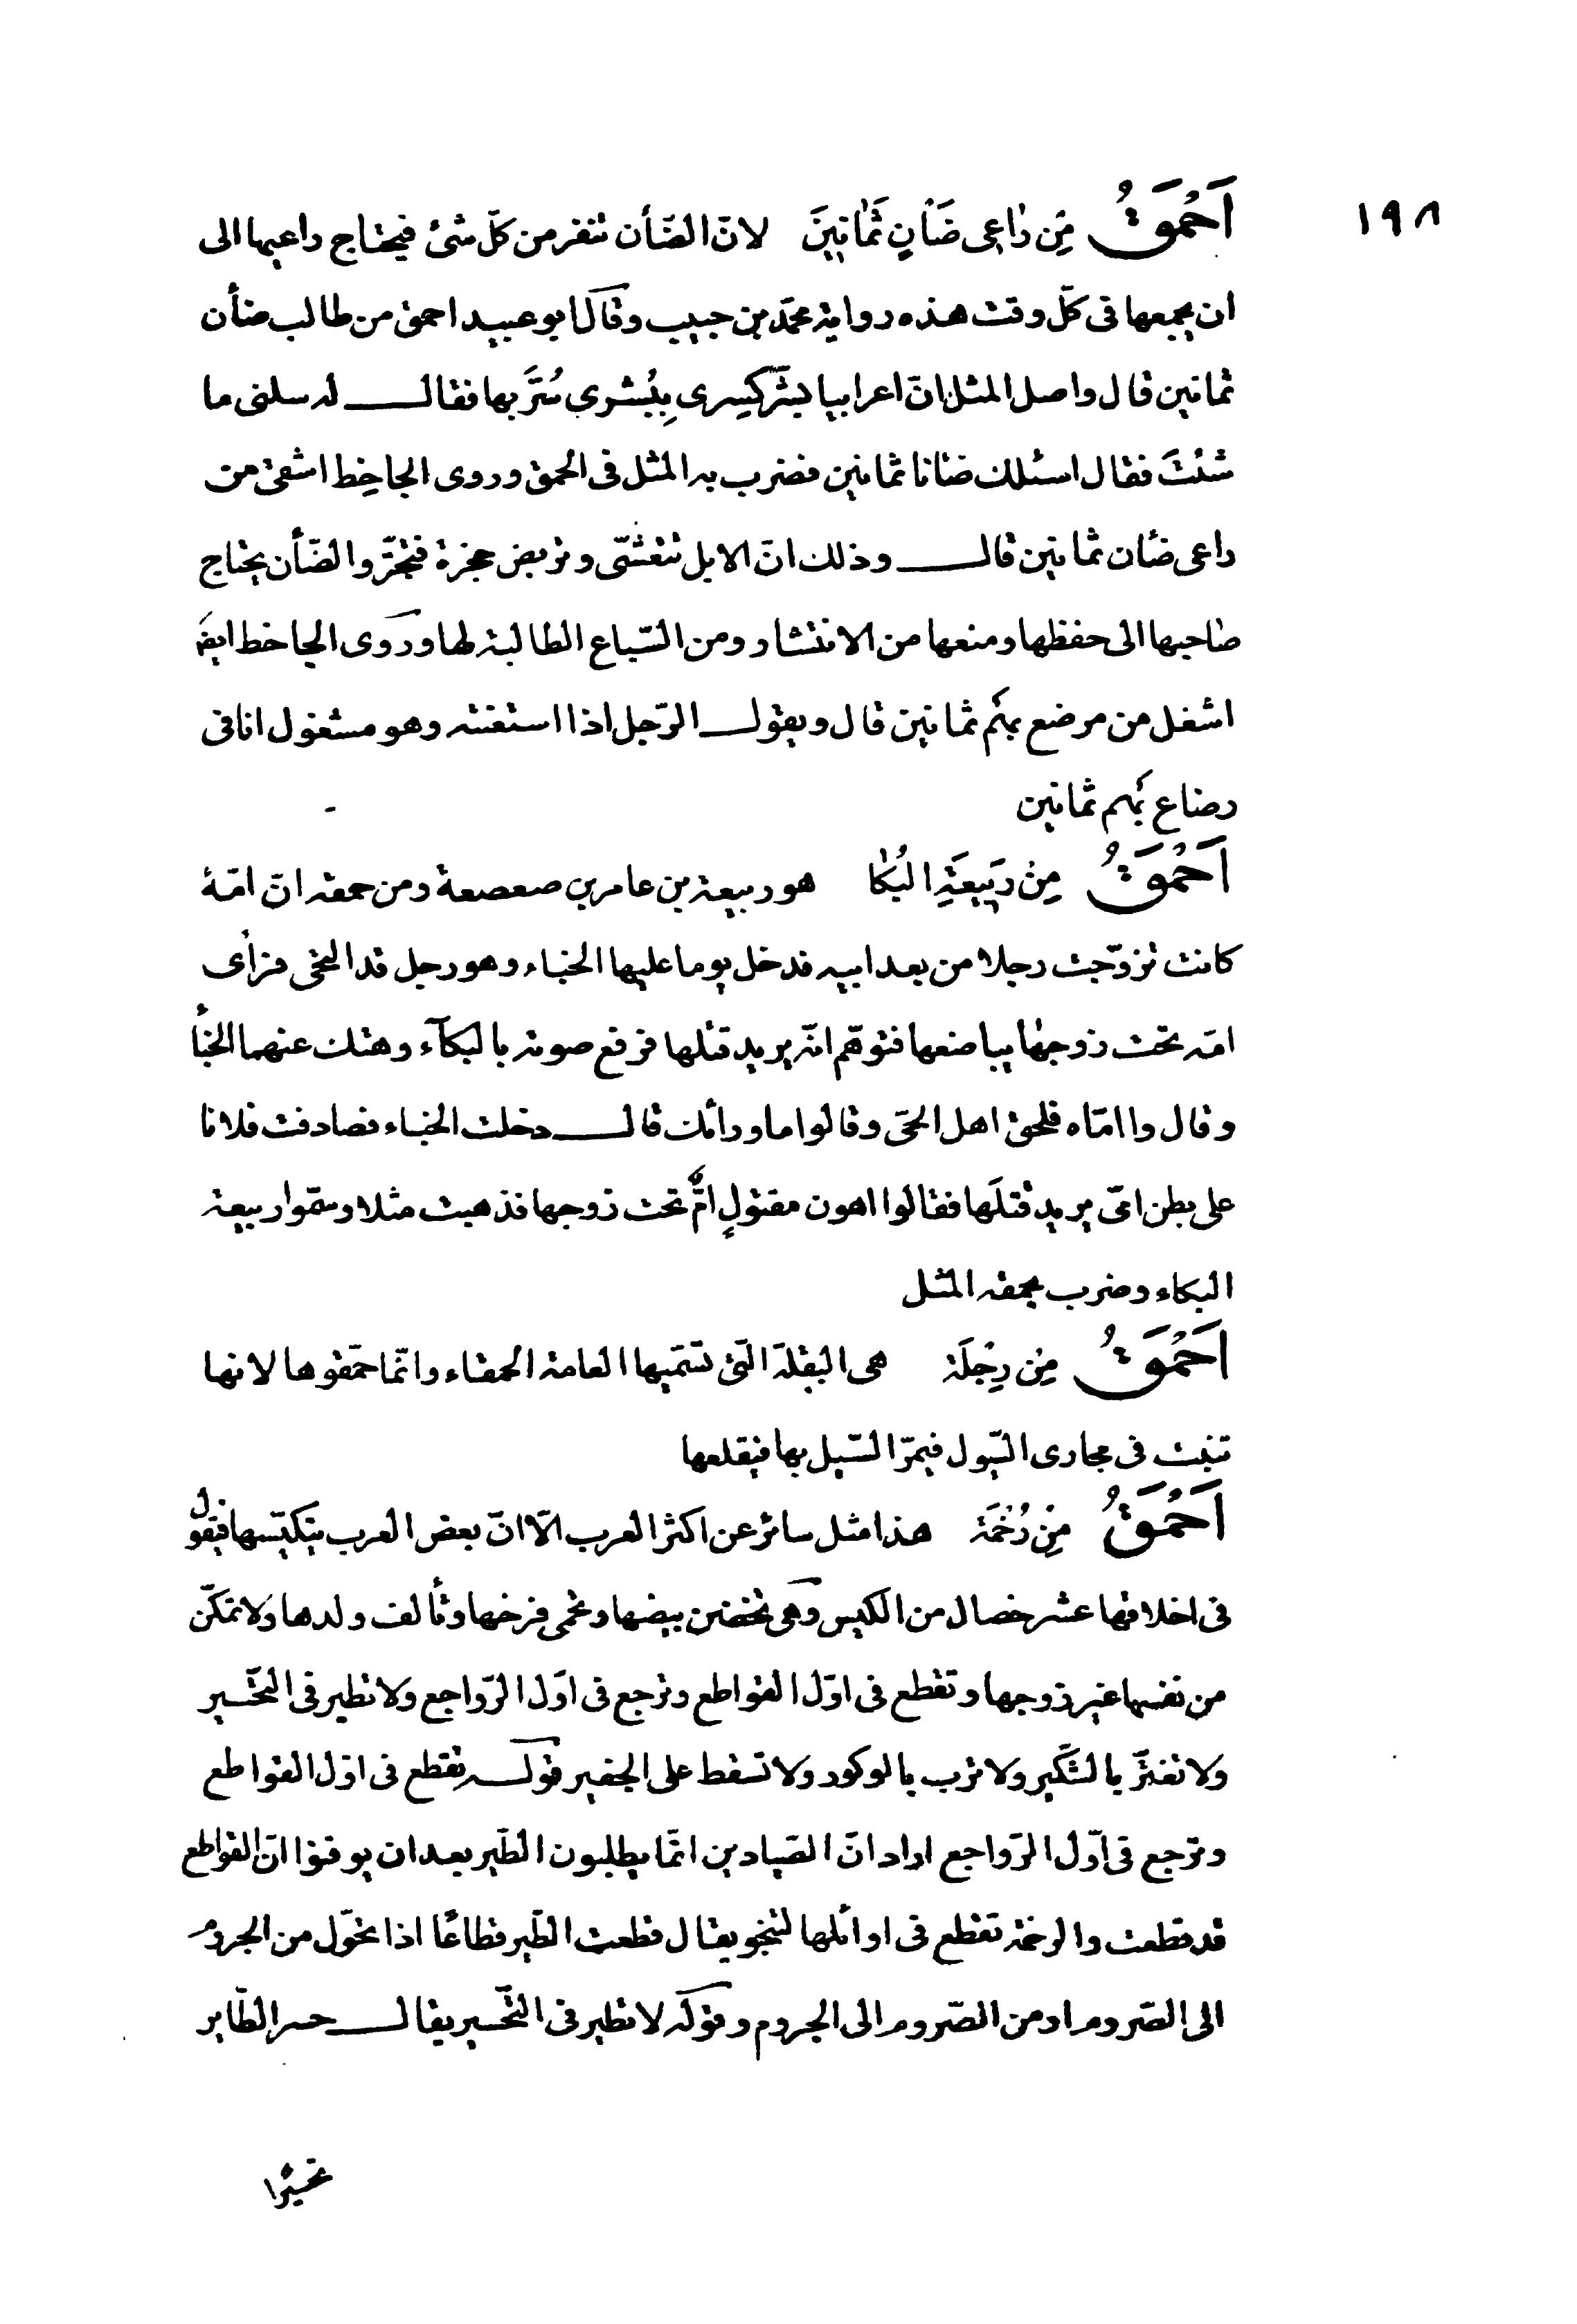 ١٩٨
اَحْمَقُ مِنْ رٰاعِى ضَأْنٍ ثَمٰانِينَ لانّ الضّأن تنفر من كلّ شئ فيحتاج راعيها الى
ان يجمعها فى كلّ وقت هذه رواية محمّد بن حبيب وقال ابو عبيد احمق من طالب ضأن
ثمانين قال واصل المثل انّ اعرابيا بشّر كِسرى بِبُشرى سُرَّ بها فقال له سلنى ما
شئتَ فقال اسئلك ضئانا ثمانين فضرب به المثل فى الحمق وروى الجاحِظ اشقى من
راعى ضئان ثمانين قال وذلك انّ الابل تتعشّى وتربض حجزة فتجترّ والضّأن يحتاج
صٰاحبها الى حفظها ومنعها من الانتشار ومن السّباع الطالبة لها وروى الجاحظ ايضَ
اشغل من مرضع بهْم ثمانين قال ويقول الرّجل اذا استعنته وهو مشغول انا فى
رضاع بَهم ثمانين
اَحْمَقُ مِنْ رَبِيعَةِ البُكٰا هو ربيعة بن عامر بن صعصعة ومن حمقه انّ امّهُ
كانت تزوّجت رجلا من بعد ابيه فدخل يوما عليها الخباء وهو رجل قد التحى فرأى
امّه تحت زوجهٰا يباضعها فتوهّم انّه يريد قتلها فرفع صوته بالبكآء وهتك عنهما الخبأ
وقال وا امّاه فلحق اهل الحىّ وقالوا ما ورائك قال دخلت الخباء فصادفت فلانا
على بطن امّى يريد قتلَها فقالوا اهون مقتولٍ امٌّ تحت زوجها فذهبت مثلا وسمّوا ربيعة
البكاء وضرب بحمقه المثل
اَحْمَقُ مِنْ رِجْلَة هى البقلة الّتى تسمّيها العامة الحمقاء وانّما حمّقوها لانها
تنبت فى مجارى السّيول فيمرّ السّيل بها فيقلعها
اَحْمَقُ مِنْ رُخْمَة هذا مثل سائر عن اكثر العرب الّا انّ بعض العرب يتكيّسها فيقول
فى اخلاقها عشر خصال من الكيس وهى تحضن بيضها وتحمى فرخها وتألف ولدها ولا تمكّن
من نفسها غير زوجها وتقطع فى اوّل القواطع وترجع فى اوّل الرّواجع ولا تطير فى التّحسير
ولا تغترّ بالشَّكير ولا ترب بالوكور ولا تسقط على الجفير قوله تقطع فى اوّل القواطع
وترجع فى اوّل الرّواجع اراد انّ الصّيادين انّما يطلبون الطّير بعد ان يوقنوا انّ القواطع
قد قطعت والرخمة تقطع فى اوائلها لتنجو يقال قطعت الطّير قطاعًا اذا تحوّل من الجروم
الى الصّرود ومن الصّرود الى الجروم وقوله لا تطير فى التّحسير يقال حسر الطّاير
تحسيرا